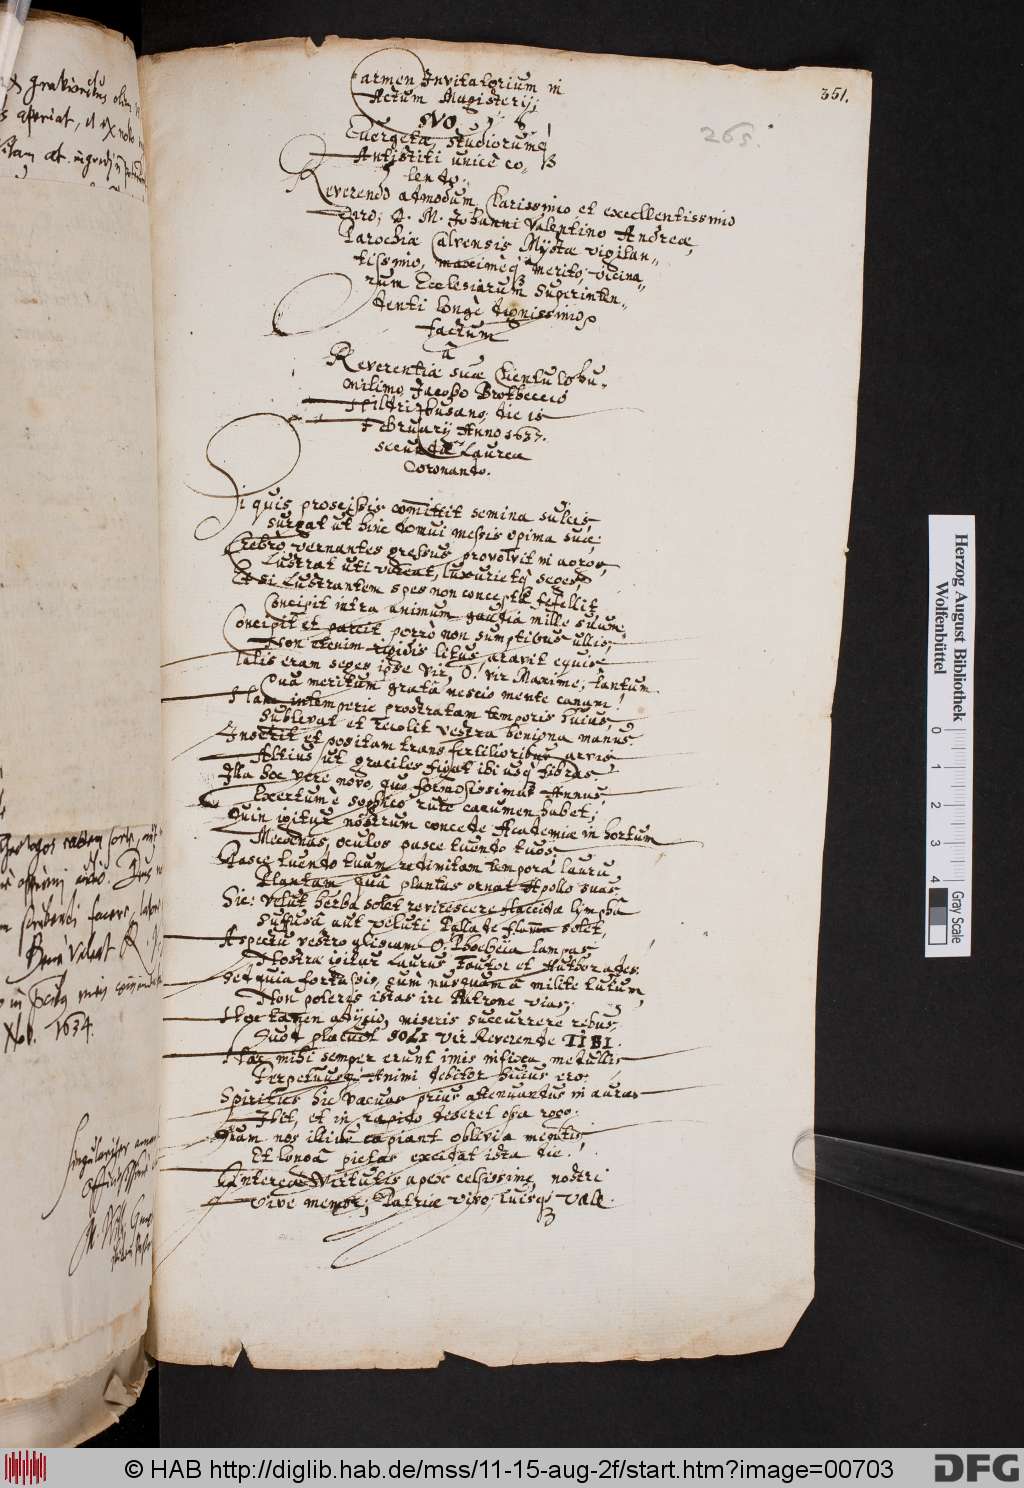 351.
265.
Carmen Invitatorium in
Actum Magisterij,
SVO
Evergetæ, studiorumq3
Antistiti unicè co-
lendo.
Reverendo admodum, Clarissimo et excellentissimo
Dno; D. M. Johanni Valentino Andreæ,
Parochiæ Calvensis Mystæ vigilan-
tissimo, maximeq3 merito, vicina-
rum Ecclesiarum Superinten-
denti longè dignissimo
factum
â
Reverentiæ suæ Clientulo hu-
milimo, Jacobo
die 15
Februarij Anno 1637.
secundâ Laurea
Coronando.
Si quis proscissis comittit semina sulcis
Surgat ut hinc domui messis opima suæ;
Crebrò vernantes gressus provolvit in agros,
Lustrat uti vireat, luxurietq3 seges,
Et si lustrantem spes non concepta fefellit
Concipit intra animum gaudia mille suum:
Concipit et parcit porrò non sumptibus ullis,
Non etenim rigidis litus aravit equis
Talis eram seges ipse Vir, O! vir Maxime, tantum
Quâ meritum gratâ nescio mente canam!
Nam intemperie prostratam temporis huius,
Sublevat et recolit vestra benigna manus
Inserit et positam trans fertilioribus arvis
Altius ut graciles figat ibi usq3 fibras
Illa hoc vere novo, quo formosissimus Annus,
Exertum è sophico rure cacumen habet;
Quin igitur nostrum concede Academiæ in hortum
Mecœnas, oculos pasce tuendo tuos
Pasce tuendo tuam redimitam tempora lauru
Plantam quâ plantas ornat Apollo suas
Sic: velut herba solet revirescere flaccida lymphâ
Suffusâ aut veluti Pallade flamma solet,
Aspectu vestro gliscam O! Phoebeia lampas
Nostra igitur Laurus Fautor et Author ades.
Sed quia fortassis, cùm nusquam â milite tutum,
Non poteris istas ire Patrone vias;
Hoc tamen adjicio, miseris succurrere rebus,
Quod placuit SOLI vir Reverende TIBI.
Hæc mihi semper erunt imis infixa medullis
Perpetuusq3 Animi debitor huius ero:
Spiritus hic vacuas prius attenuandus in auras
Ibit, et in rapido deseret ossa rogo:
Quam nos illius capiant oblivia mentis,
Et longâ pietas excidat ista die.
Interea Virtutis apex celsissime, nostri
Vive memor; Patriæ vivo; tuisq3 Vale
Nov. 1634.
Herzog August Bibliothek
Wolfenbüttel
0 1 2 3 4
Gray Scale
© HAB http://diglib.hab.de/mss/11-15-aug-2f/start.htm?image=00703
DFG